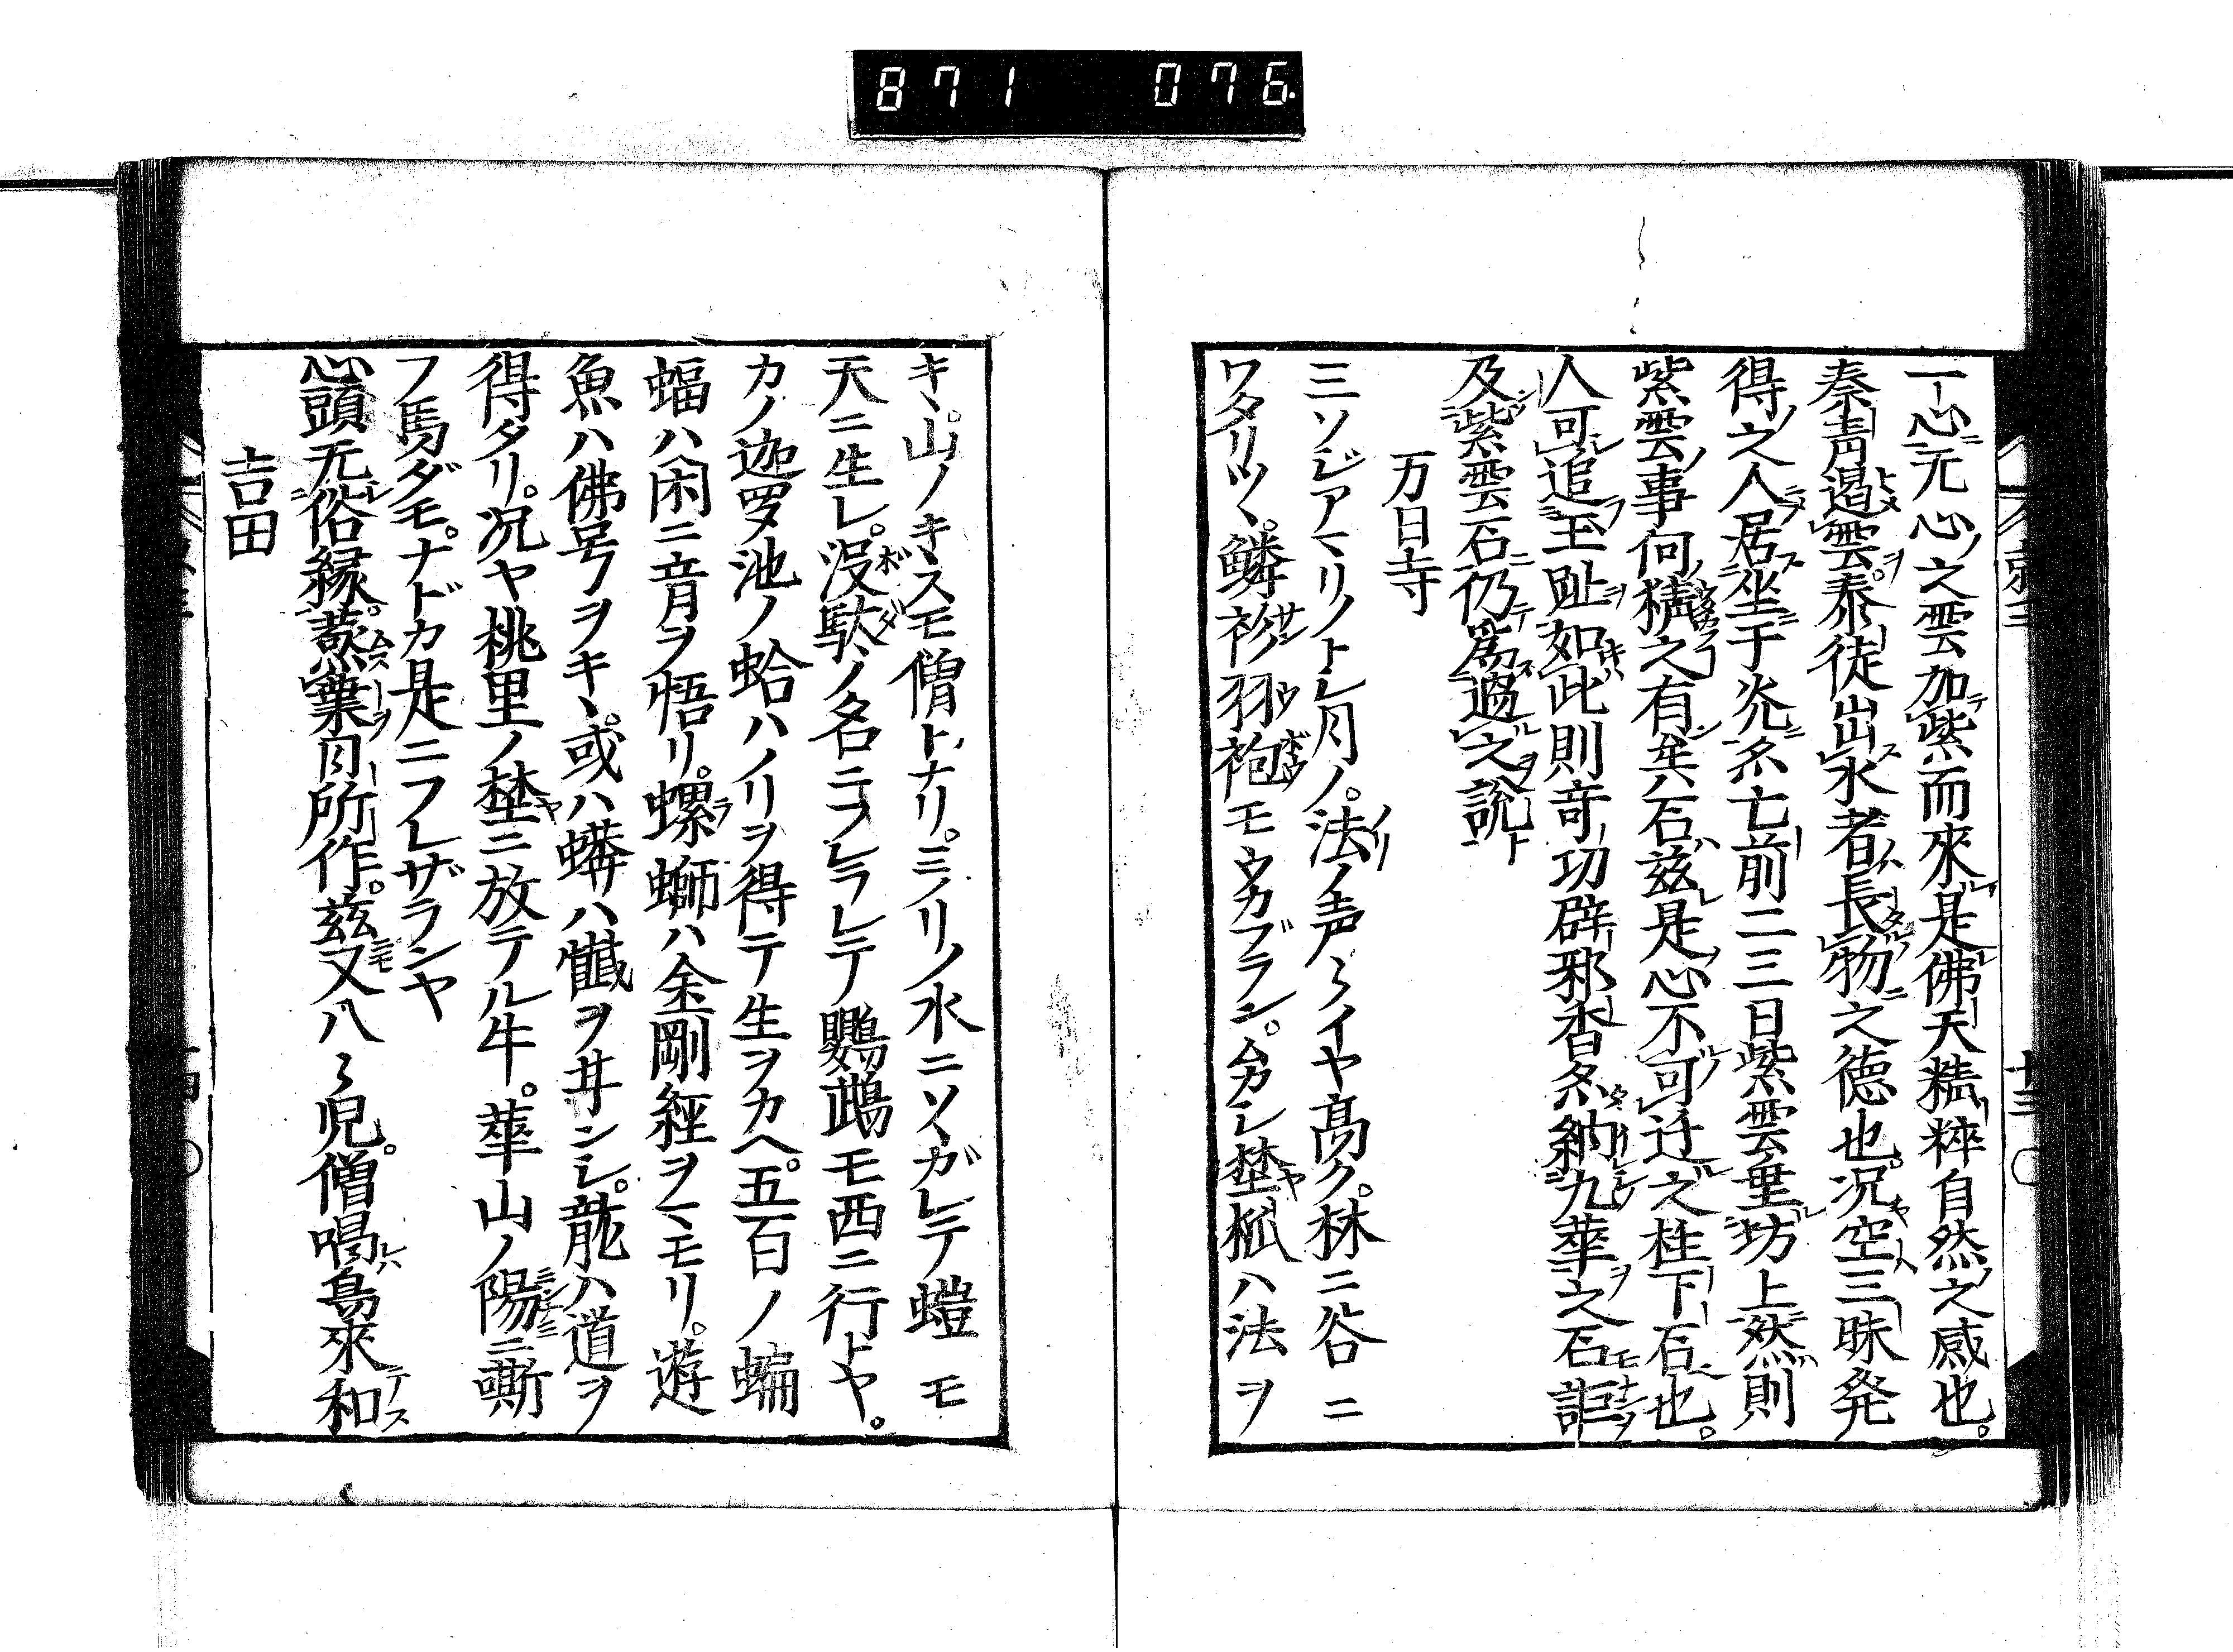 871 076.
一心元心之雲加紫而來是佛天精粹自然之感也。
秦青遏雲秦徒出水者長物之徳也。况空三昧発
得之人居坐于炎亡前二三日紫雲垂坊上然則
紫雲事何猜之有矣石茲是心不可迂之柱下石也。
人可追玉趾如此則竒功辟邪杳納九華之石詎
及紫雲石仍爲過之説
万日寺
三ソジアマリノトシ月ノ。法ノ声〻イヤ高ク。林ニ谷ニ
ワタリツヽ。鱗衫羽袍モウカブラン。ムカシ埜狐ハ法ヲ
キヽ。山ノキヾスモ僧トナリ。ミノリノ水ニソヽガレテ螘モ
天ニ生レ。没駄ノ名ニフレラレテ鸚鵡モ西ニ行トヤ。
カノ迦羅池ノ蛤ハノリヲ得テ生ヲカヘ。五百ノ蝙
蝠ハ閑ニ音ヲ悟リ。螺螄ハ金剛經ヲマモリ。遊
魚ハ佛号ヲキヽ。或ハ蠎ハ懺ヲ井ンシ。龍ハ道ヲ
得タリ。况ヤ桃里ノ埜ニ放テル牛。華山ノ陽ニ嘶
フ馬ダモ。ナドカ是ニフレザランヤ
心頭无俗縁。蒸菓自所作。茲又八〻児。僧喝鳥來和
吉田
十三